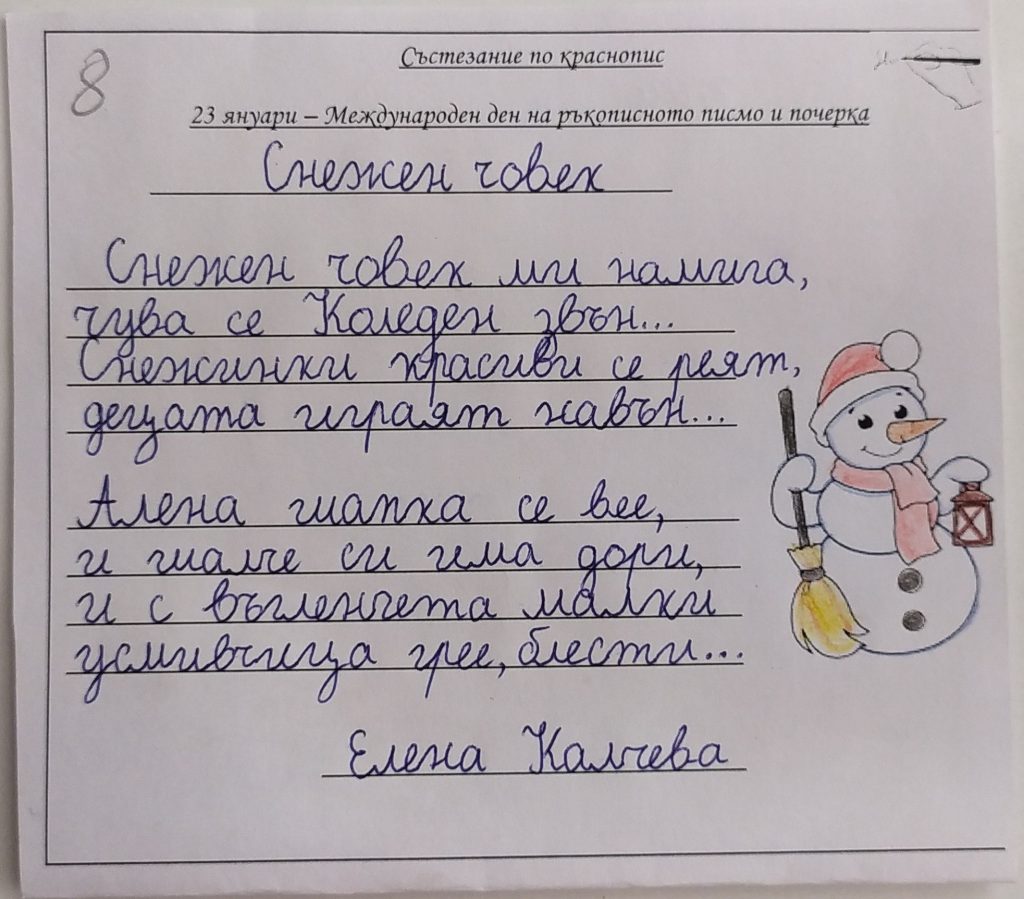 8
Състезание по краснопис
23 януари – Международен ден на ръкописното писмо и почерка
Снежен човек
Снежен човек ми намига,
чува се Коледен звън...
Снежинки красиви се реят,
децата играят навън...
Алена шапка се вее,
и шалче си има дори,
и с въгленчета малки
усмивчица грее, блести...
Елена Калчева